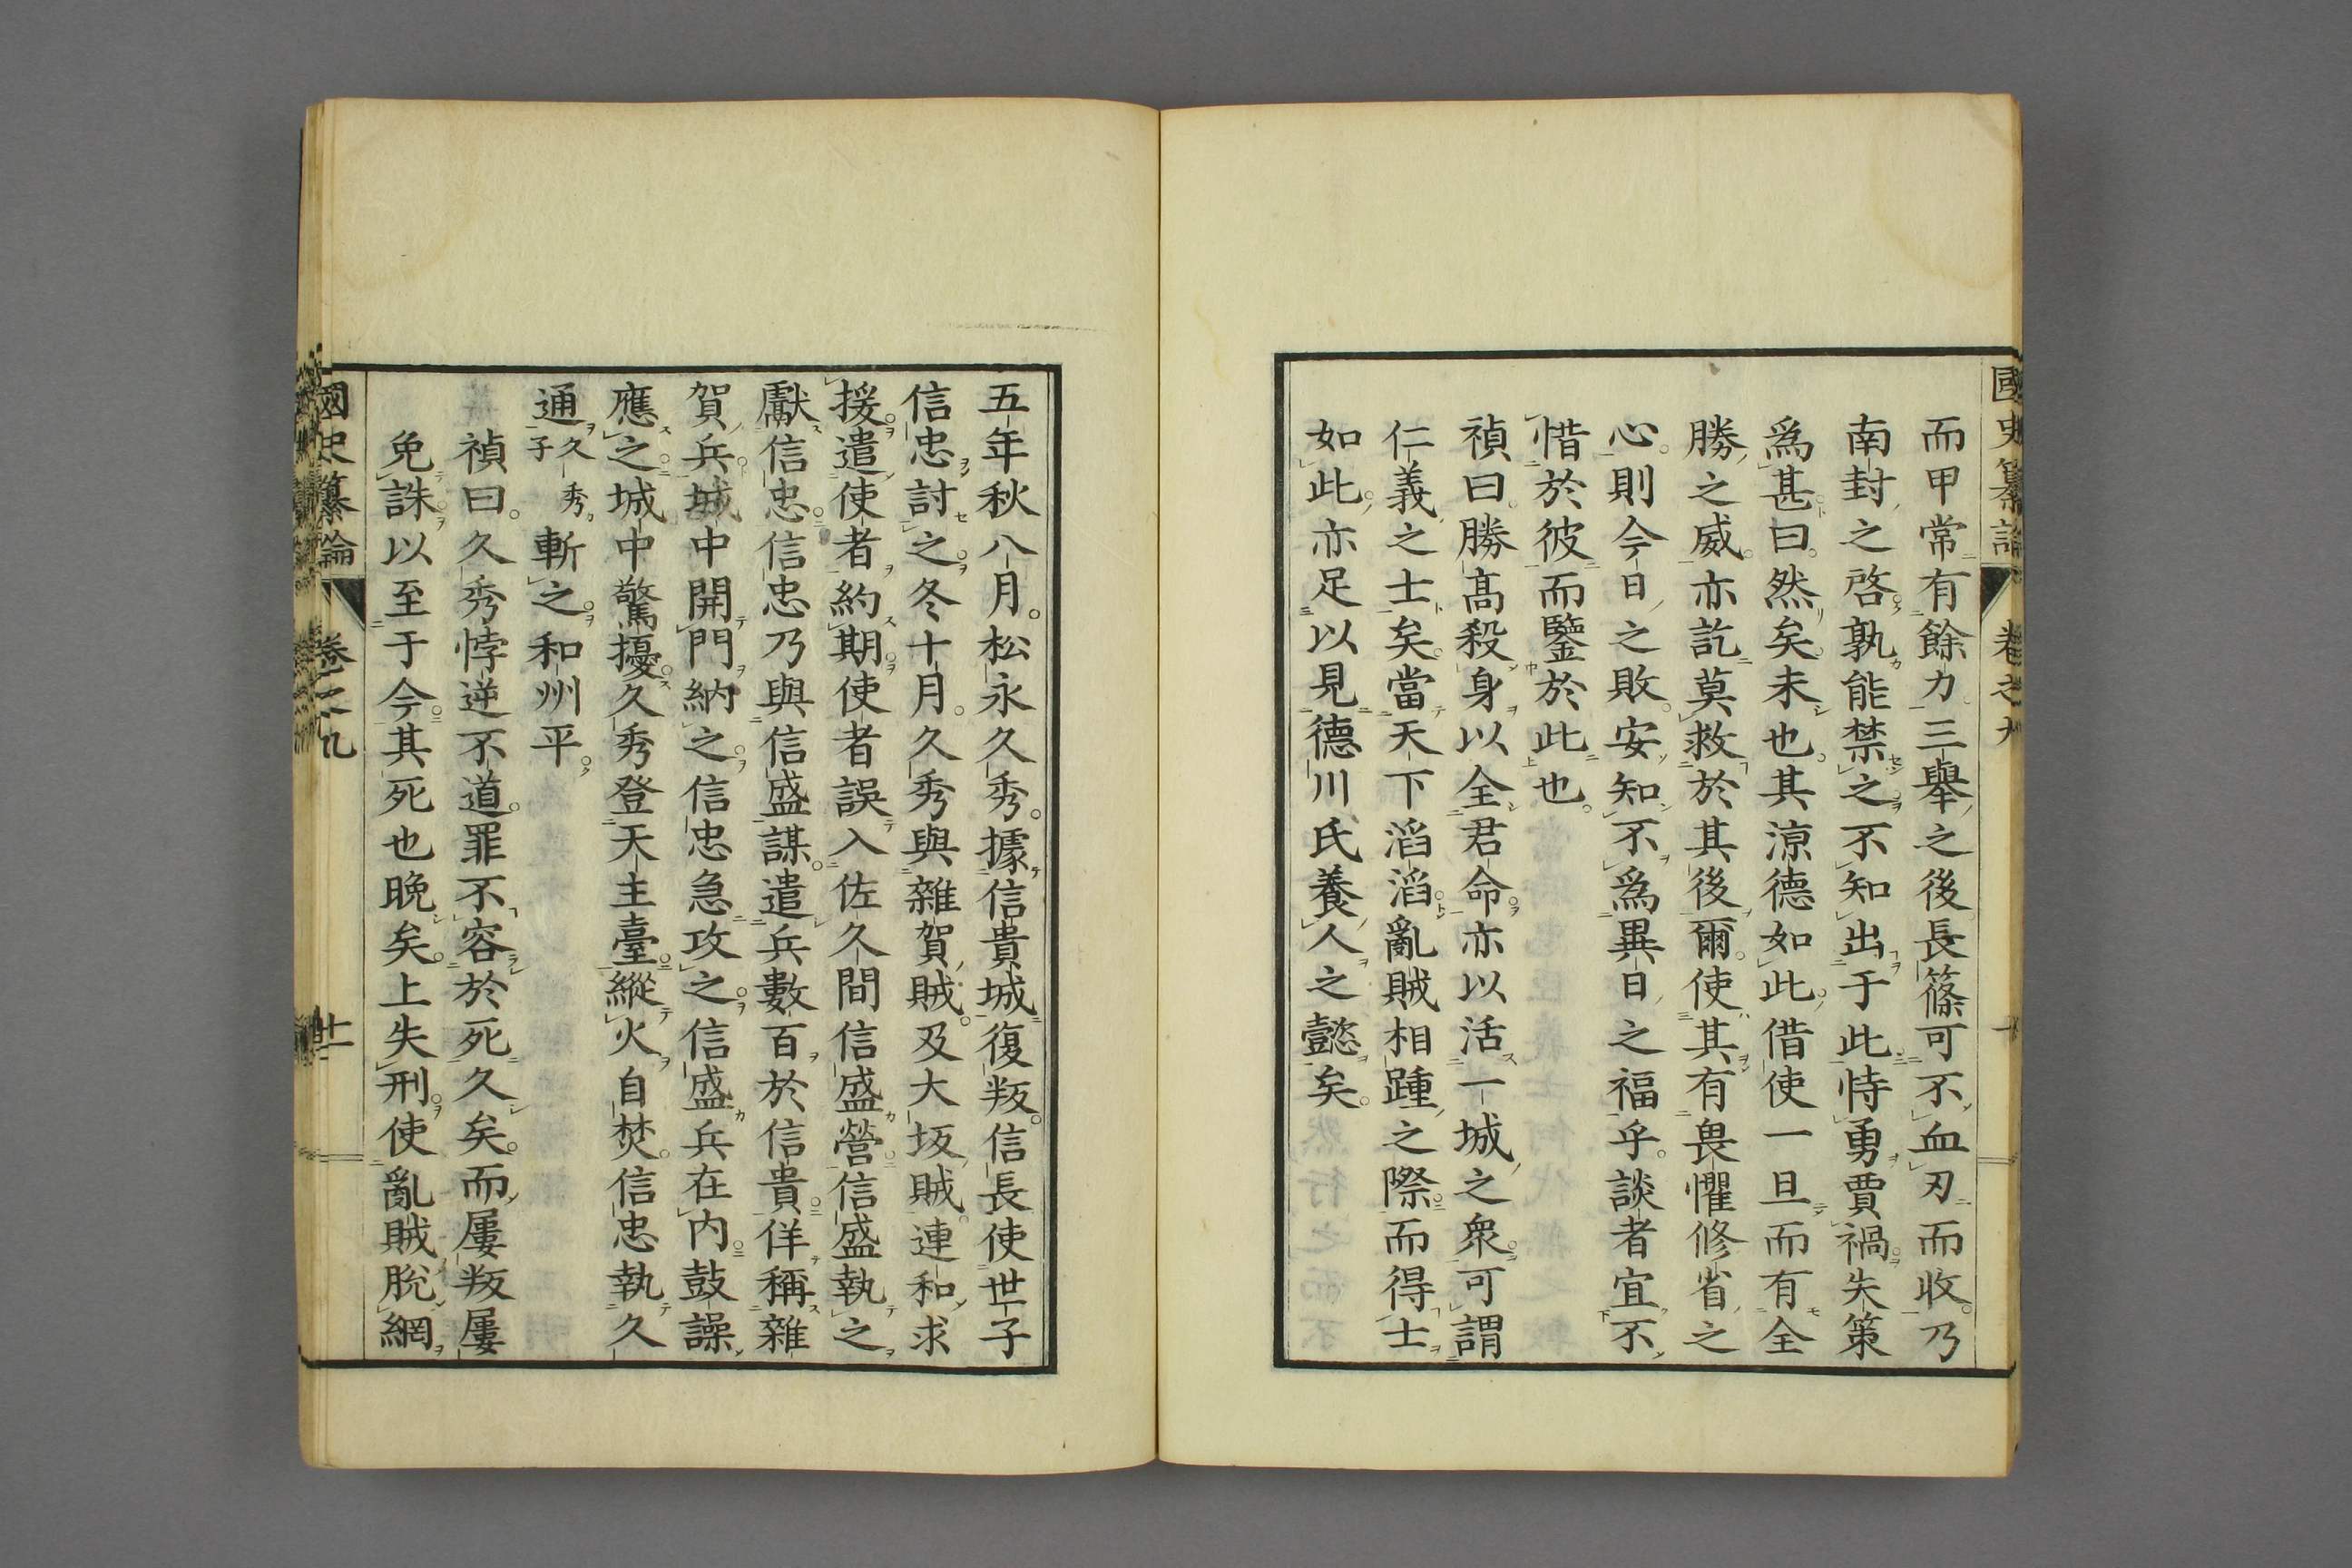 國史纂論 卷之九 十
而甲常有餘力三舉之後長篠可不血刃而收。乃
南封之啓孰能禁之不知出于此恃勇賈禍失策
爲甚曰。然矣未也。其涼德如此借使一旦而有全
勝之威。亦訖莫救於其後爾。使其有畏懼修省之
心。則今日之敗。安知不爲異日之福乎。談者宜不
惜於彼而鑒於此也。
禎曰。勝高殺身以全君命亦以活一城之衆可謂
仁義之士矣。當天下滔滔亂賊相踵之際而得士
如此亦足以見德川氏養人之懿矣。
五年秋八月。松永久秀。據信貴城復叛。信長使世子
信忠討之。冬十月。久秀與雜賀賊。及大坂賊。連和求
援。遣使者約期。使者誤入佐久間信盛營信盛執之
獻信忠信忠乃與信盛謀。遣兵數百於信貴佯稱雜
賀兵城中開門納之。信忠急攻之。信盛兵在内鼓譟
應之城中驚擾。久秀登天主臺縱火自焚。信忠執久
通久秀子斬之。和州平。
禎曰。久秀悖逆不道。罪不容於死久矣。而屢叛屢
免誅以至于今其死也晚矣。上失刑使亂賊脫網
國史纂論 卷之九 十一